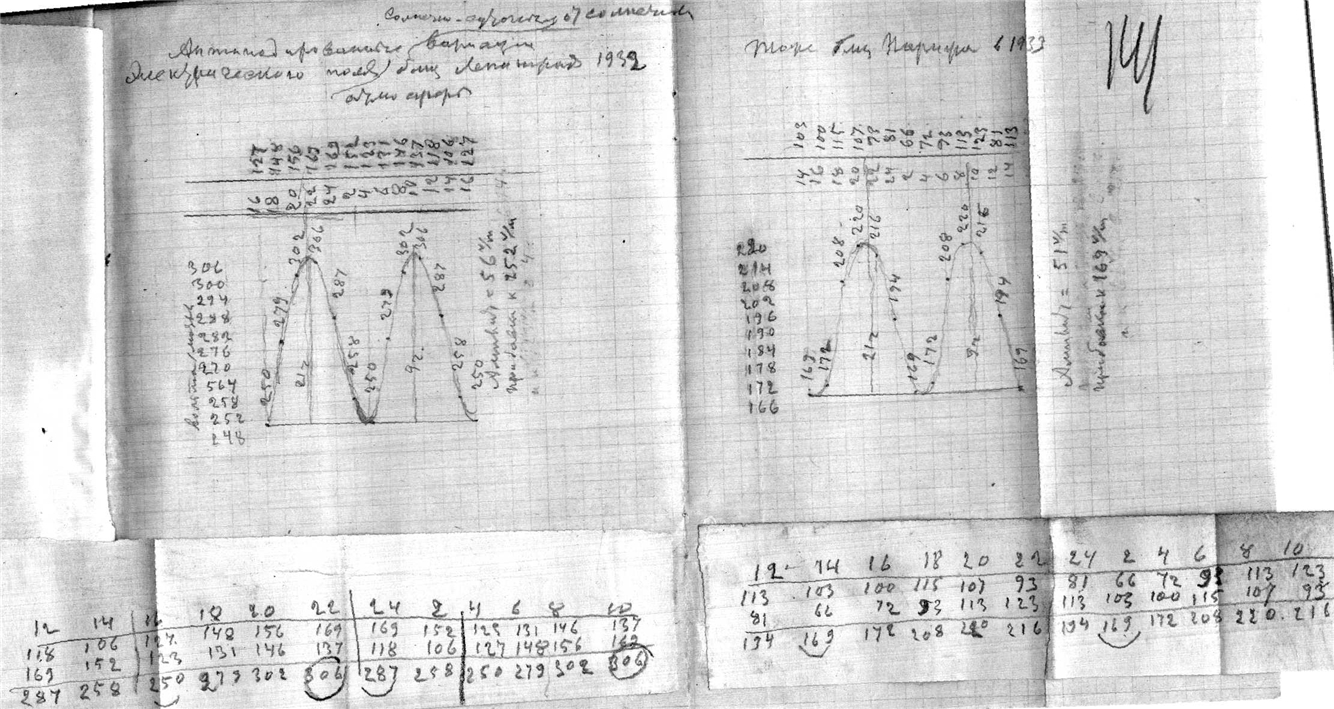 Антиподированные вариации
электрического поля близ Ленинграда 1932
атмосферы
127 148 156 169 169 152 123 131 146 137 118 106 127
16 18 20 22 24 2 4 6 8 10 12 14 16
306
300
294
288
282
276
270
564
258
252
248
250 279 302 306 287 258 250 279 302 306 287 258 250
21ч 9ч
Амплит = 56 V/m
прибавки к 252 V/m
12 14 16 18 20 22 24 2 4 6 8 10
118 106 127 148 156 169 169 152 123 131 146 137
169 152 123 131 146 137 118 106 127 148 156 169
287 258 250 279 302 306 287 258 250 279 302 306
Тоже близ Парижа в 1933
103 100 115 107 93 81 66 72 93 113 123 81 113
14 16 18 20 22 24 2 4 6 8 10 12 14
220
214
208
202
196
190
184
178
172
166
169 172 208 220 216 194 169 172 208 220 216 194 169
21ч 9ч
Амплит = 51 V/m
прибавки к 169 V/m
12 14 16 18 20 22 24 2 4 6 8 10
113 103 100 115 107 93 81 66 72 93 113 123
81 66 72 93 113 123 113 103 100 115 107 93
194 169 172 208 220 216 194 169 172 208 220 216